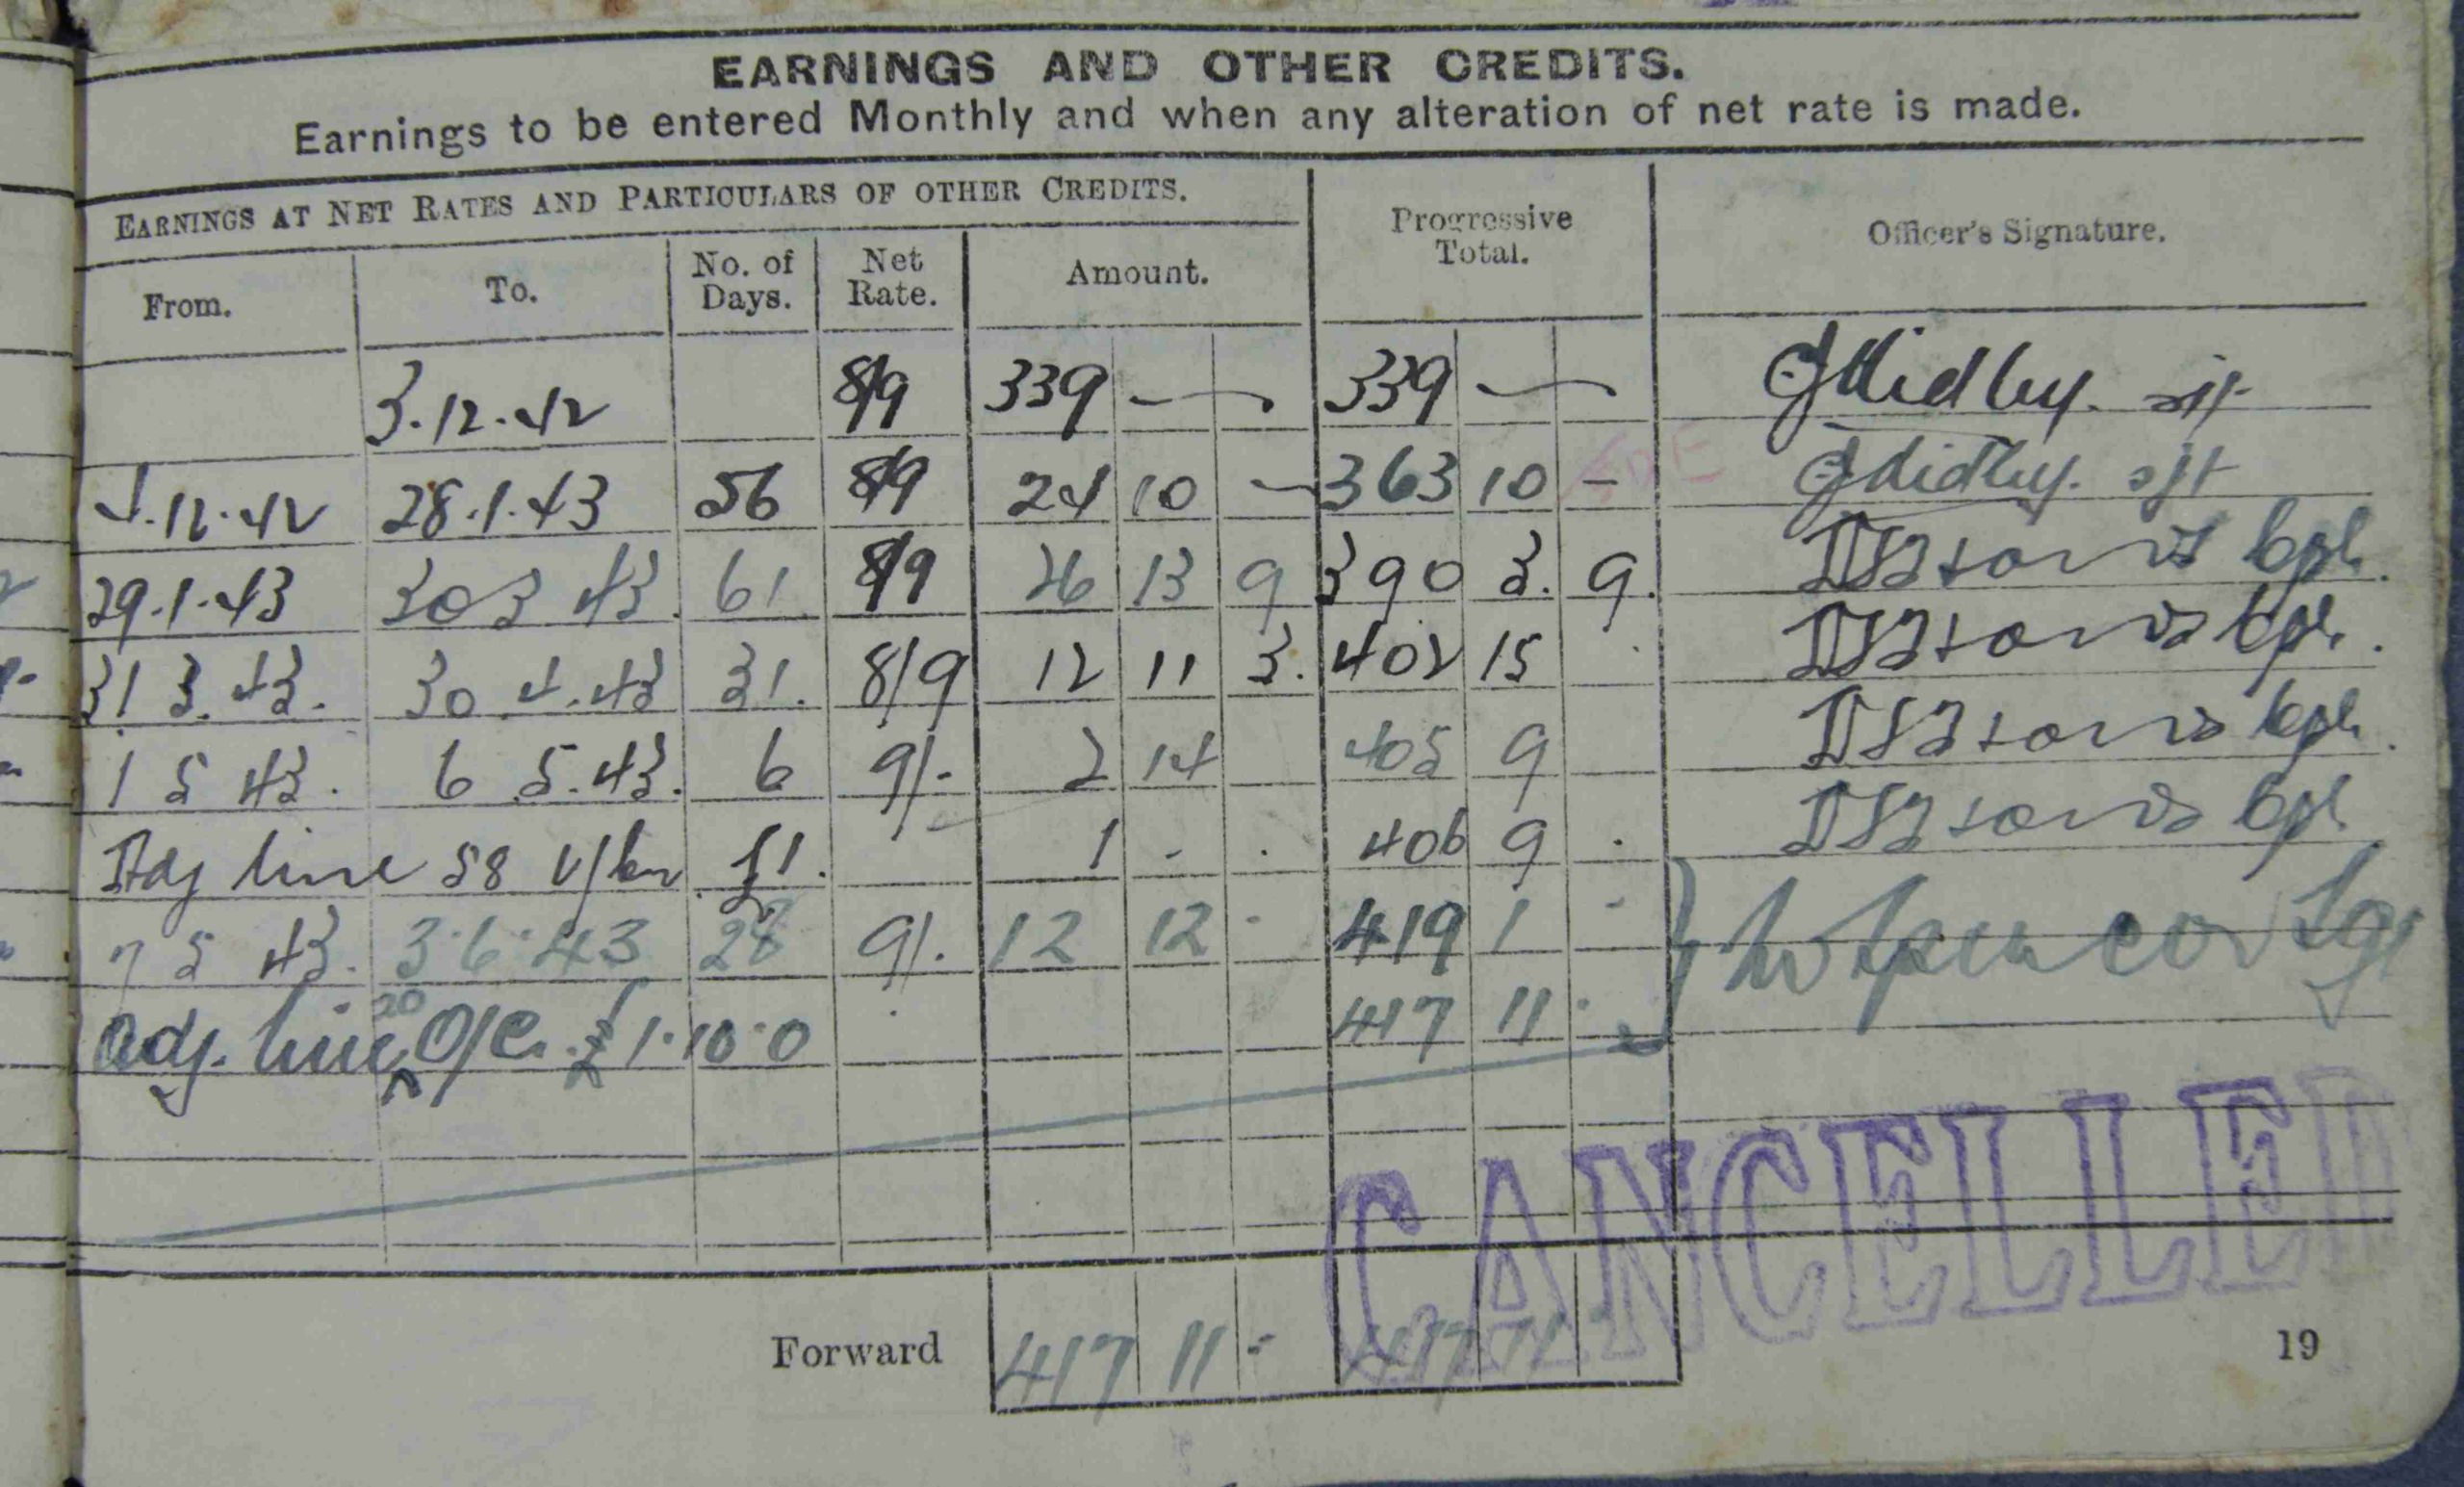 EARNINGS AND OTHER CREDITS.
Earnings to be entered Monthly and when any alteration of net rate is made.
EARNINGS AT NET RATES AND PARTICULARS OF OTHER CREDITS.
Progressive Total.
Officer's Signature.
From. To. No. of Days. Net Rate. Amount.
3.12.42 8/9 339 — 339 —
4.12.42 28.1.43 56 8/9 24 10 - 363 10 -
29.1.43 30 3 43. 61 8/9 26 13 9 390 3. 9.
31 3. 43. 30 4.43 31. 8/9 12 11 3. 402 15
1 5 43. 6 5.43. 6 9/- 2 14 405 9
Adj line 58 £1. 1 - . 406 9 .
7 5 43. 3.6.43 28 9/. 12 12 - 419 1 -
adj. line 20 O/C. £1.10.0 417 11 -
CANCELLED
Forward 417 11 - 417 11
19